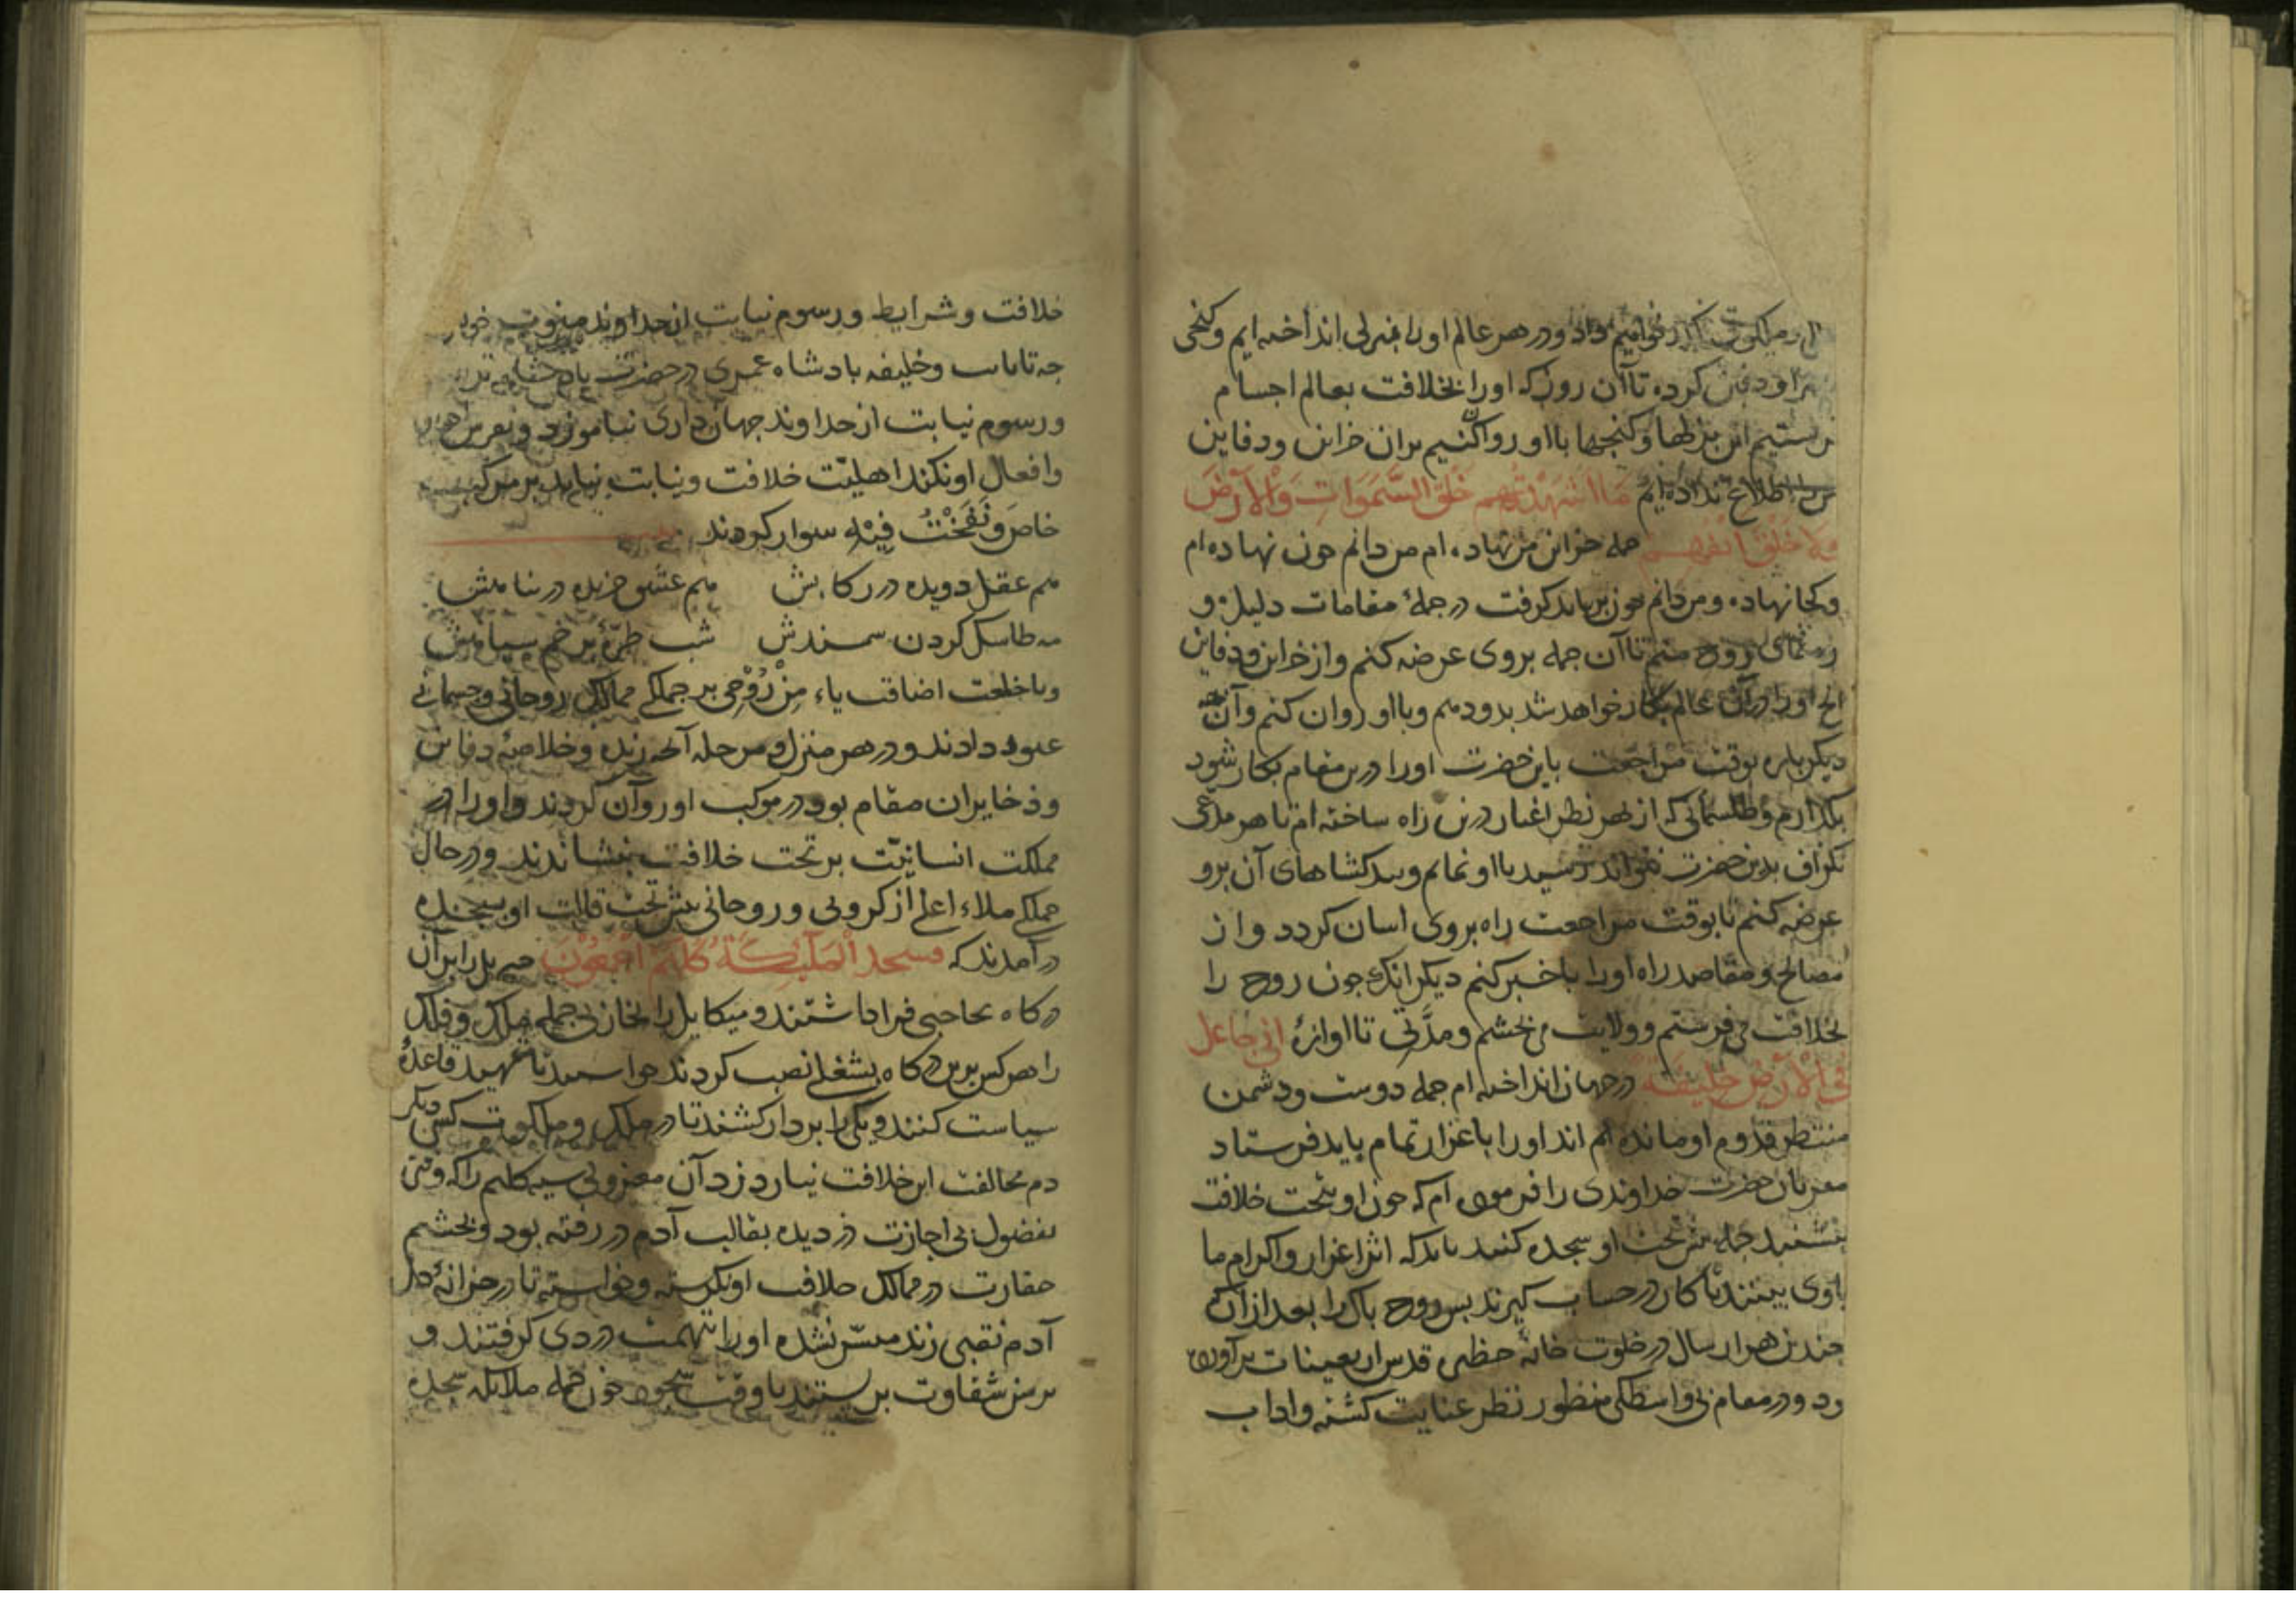 و در هر عالم او را منزلی انداخته ایم و گنجی
کرده تا آن روز که او را بخلافت بعالم اجسام
فرستیم این نزلها و گنجها با او روا کنیم بران خزاین و دفاین
اطلاع نداده ایم مَا اَشْهَدْتُهُم خَلْقَ السَّمَوَاتِ وَالْاَرْضِ
وَلَا خَلْقَ اَنْفُسِهِم جمله خزاین من نهاده ام من دانم چون نهاده ام
و کجا نهاده و من دانم چون بر باید گرفت در جملهٔ مقامات دلیل و
رهنمای روح منم تا آن جمله بروی عرضه کنم و از خزاین و دفاین
انج او را در آن عالم بکار خواهد شد بدو دهم و با او روان کنم و آنچه
دیکر باره بوقت مراجعت باین حضرت او را درین مقام بکار شود
بگذارم و طلسماتی که از بهر نظر اغیار درین راه ساخته ام تا هر مدعی
بگزاف بدین حضرت نتواند رسید با او نمایم و بندکشاهای آن برو
عرضه کنم تا بوقت مراجعت راه بروی اسان کردد و از
مصالح و مقاصد راه او را باخبر کنم دیکر انک چون روح را
بخلافت می فرستم و ولایت می بخشم و مدّتی تا اوازهٔ انی جاعل
فی الْاَرْضِ خَلیفَة در جهان انداخته ام جمله دوست و دشمن
منتظر قدوم او مانده اند او را باعزاز تمام باید فرستاد
مقربان حضرت خداوندی را فرموده ام که چون او بتخت خلافت
بنشیند جمله پیش تخت او سجده کنید باید که اثر اعزاز و اکرام ما
باوی بینند تا کار در حساب کیرند پس روح پاک را بعد از انک
چندین هزار سال در خلوت خانهٔ حظیرهٔ قدس اربعینات برآورده
بود و در مقام بی واسطکی منظور نظر عنایت کشته و اداب
خلافت و شرایط و رسوم نیابت از خداوند
و خلیفه بادشاه عمری در حضرت بادشاه
و رسوم نیابت از خداوند جهانداری نیاموزد و
وافعال او نکند اهلیّت خلافت و نیابت نیابد بر مرکب
خاص وَنَفَخْتُ فِیْهِ سوار کردند
هم عقل دویده در رکابش هم عشق خزیده در پناهش
مه طاسک کردن سمندش شب طرّهٔ پرخم سیاهش
و با خلعت اضافت یاء مِنْ رُوْحِی بر جملکی ممالک روحانی و جسمانی
عبور دادند و در هر منزل و مرحله آنچ زبده و خلاصهٔ دفاین
و ذخایر ان مقام بود در موکب او روان کردند و او را در
مملکت انسانیّت بر تخت خلافت بنشاندند و در حال
جملکی ملاء اعلی از کروبی و روحانی پیش تخت قالب او بسجده
درآمدند که فسجد المَلٰئِکَةُ کُلُّهُمْ اَجْمَعُوْنَ جبریل را بران
درکاه بحاجبی فرا داشتند و میکایل را بخازنی جمله ملک و فلک
را هر کس برین درکاه بشغلی نصب کردند خواستند تا تمهید قاعدهٔ
سیاست کنند و یکی را بر دار کشند تا در ملک و ملکوت کسی دیکر
دم مخالفت این خلافت نیارد زد آن مغرور سیه کلیم را که وقتی
بفضول بی اجازت دزدیده بقالب آدم در رفته بود و بچشم
حقارت در ممالک خلافت او نکرسته و خواسته تا در خزانهٔ دل
آدم نقبی زند میسّر نشده او را بتهمت دزدی کرفتند و
برسن شقاوت بربستند تا وقت سجود چون جمله ملایکه سجده